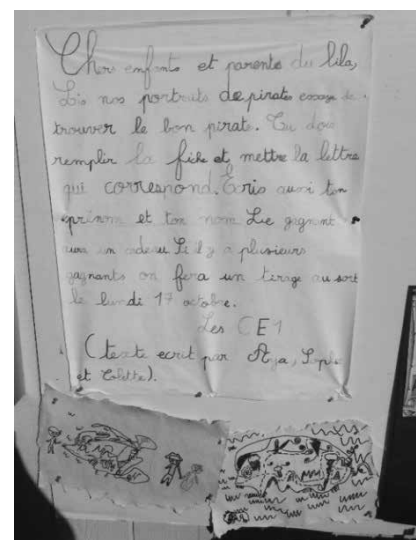 Chers enfants et parents du lila,
Lis nos portraits de pirates essaye de
trouver le bon pirate. Tu dois
remplir la fiche et mettre la lettre
qui correspond. Ecris aussi ton
prénom et ton nom Le gagnant
aura un cadeau Si il y a plusieurs
gagnants on fera un tirage au sort
le lundi 17 octobre.
Les CE1
(texte ecrit par Aya, Sophie
et Colette).